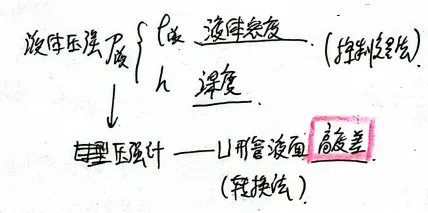 液体压强 P液 { ρ液 液体密度
h 深度 (控制变量法)
↓
压强计 —— U形管液面 高度差
(转换法)